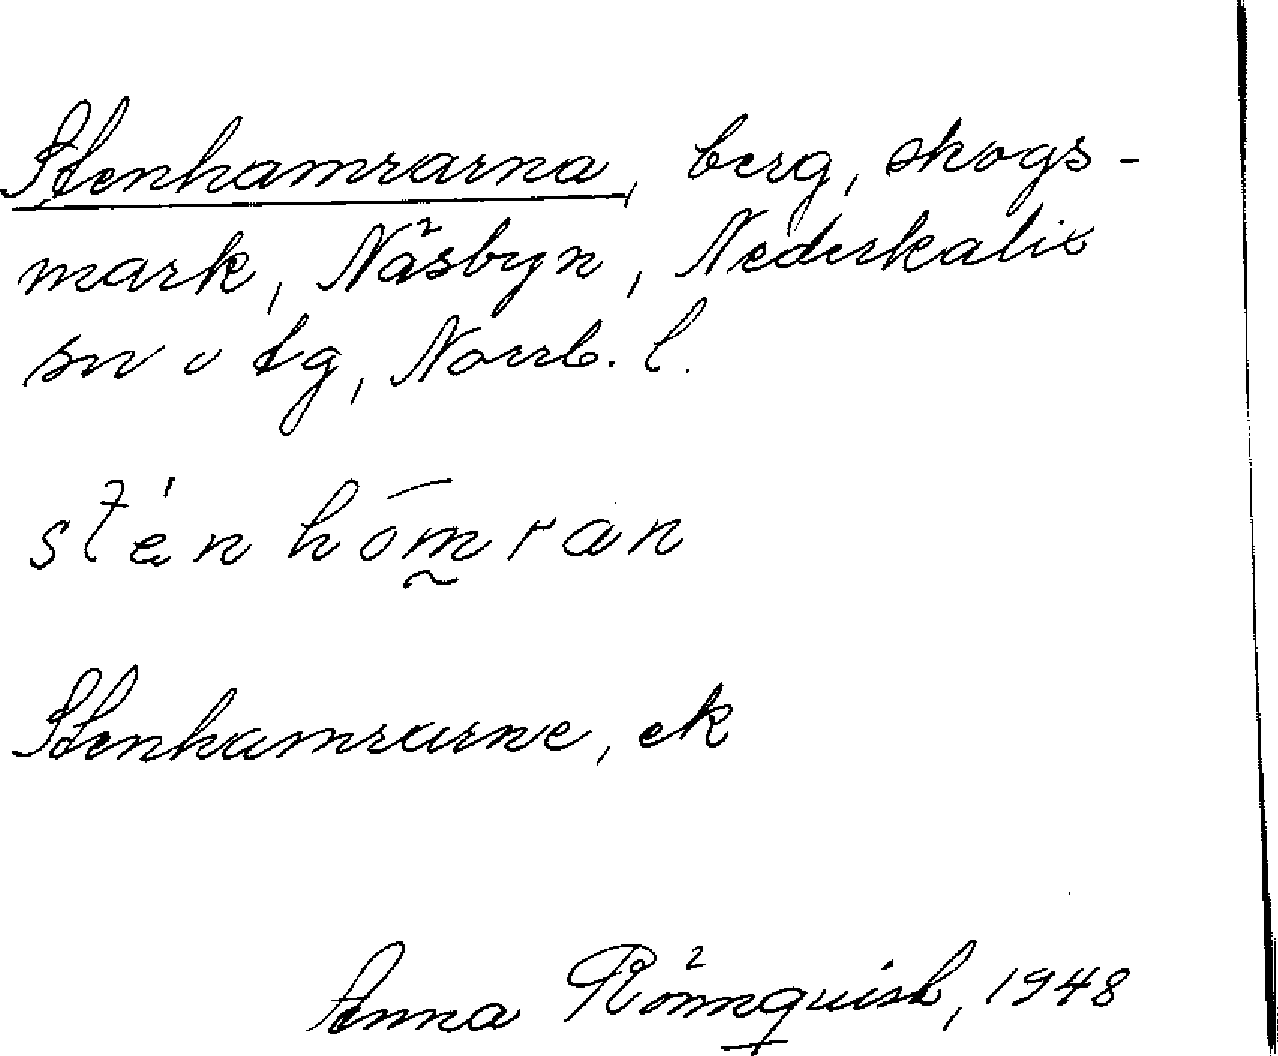 Stenhamrarna, berg, skogs-
mark, Näsbyn, Nederkalix
sn o tg, Norrb. l.
sténhōmran
Stenhamrarne, ek
Anna Rönnquist, 1948